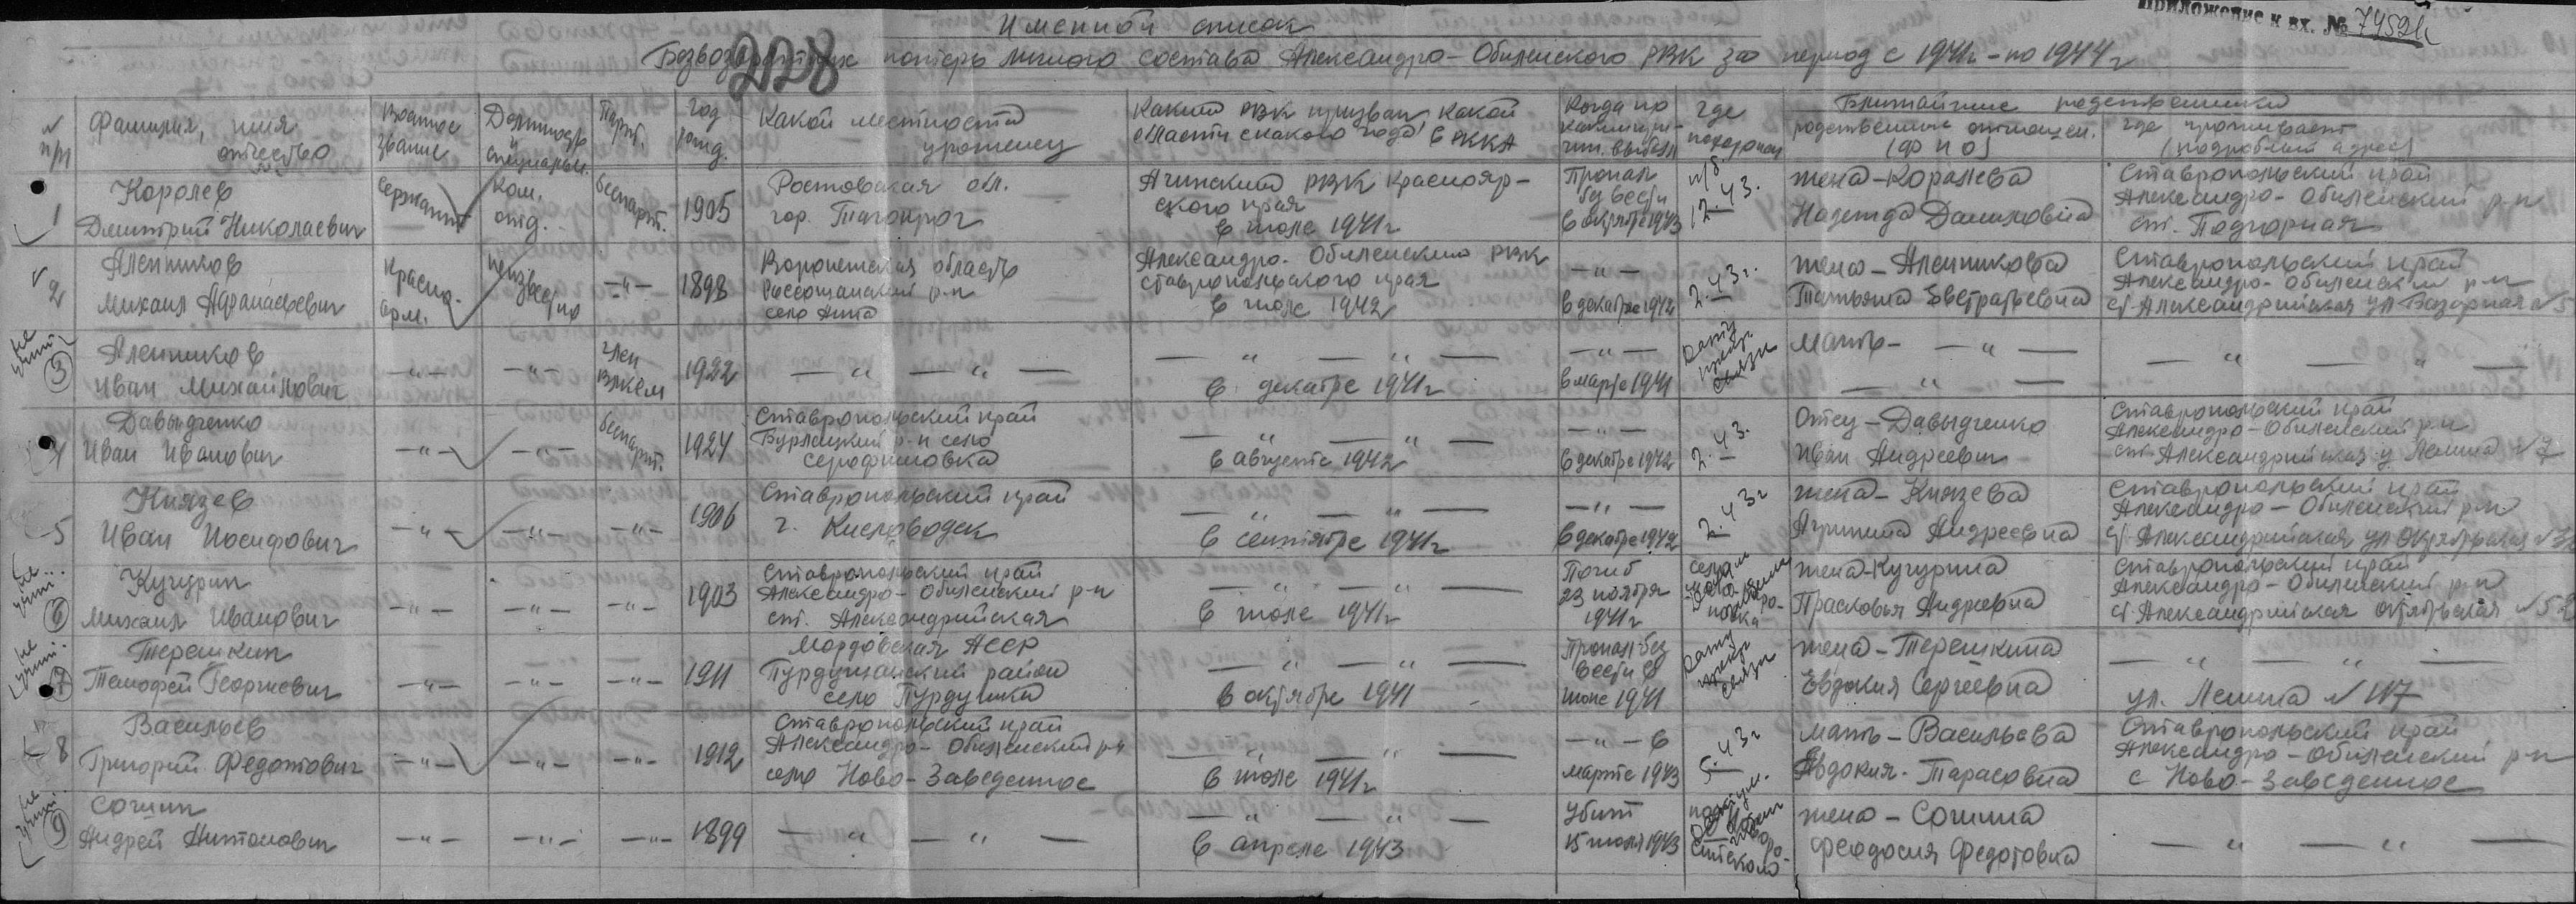 Приложение к вх. № 7452
Именной список
228
Безвозвратных потерь личного состава Александро-Обиленского РВК за период с 1941г - по 1944г
№ п/п
Фамилия, имя отчество
Военное звание
Должность и специальн.
Парт.
год рожд.
Какой местности уроженец
Каким РВК призван, какой области с какого года в РККА
Когда по какой причин. выбыл
где похоронен
Ближайшие родственники
родственные отношен. (ф и о)
где проживает (подробный адрес)
1
Королев
Дмитрий Николаевич
Сержант
Ком. отд.
беспарт.
1905
Ростовская обл.
гор. Таганрог
Ачинский РВК Краснояр-
ского края
в июле 1941г
Пропал
без вести
в октябре 1943
п/б
12.43.
жена-Королева
Надежда Даниловна
Ставропольский край
Александро-Обиленский р-н
ст. Подгорная
2
Аленников
Михаил Афанасьевич
Красно-
арм.
неизвестно
-"-
1898
Воронежская область
Россошанский р-н
село Анна
Александро-Обиленский РВК
Ставропольского края
в июле 1942
-"-
в декабре 1942
2.43г.
жена-Аленникова
Татьяна Евстратьевна
Ставропольский край
Александро-Обиленский р-н
ст. Александрийская ул Базарная №5
не учит.
3
Аленников
Иван Михайлович
-"-
-"-
член
ВЛКСМ
1922
- " - " -
- " - " -
в декабре 1941г
-"-
в марте 1941
дату прекр связи
Мать - " -
- " -
- " - " -
4
Давыдченко
Иван Иванович
-"-
-"-
беспарт.
1924
Ставропольский край
Бурлацкий р-н село
Серафимовка
- " - " -
в августе 1942
-"-
в декабре 1942
2.43.
Отец-Давыдченко
Иван Андреевич
Ставропольский край
Александро-Обиленский р-н
ст. Александрийская у Ленина №7
5
Князев
Иван Иосифович
-"-
-"-
-"-
1906
Ставропольский край
г. Кисловодск
- " - " -
в сентябре 1941г
-"-
в декабре 1942
2.43г
жена-Князева
Агрипина Андреевна
Ставропольский край
Александро-Обиленский р-н
ст. Александрийская ул Октябрьская
не учит.
6
Кучурин
Михаил Иванович
-"-
-"-
-"-
1903
Ставропольский край
Александро-Обиленский р-н
ст. Александрийская
- " - " -
в июле 1941г
Погиб
23 ноября
1941г
жена-Кучурина
Прасковья Андреевна
Ставропольский край
Александро-Обиленский р-н
ст Александрийская октябрьская №52
не учит.
7
Терешкин
Темофей Георгиевич
-"-
-"-
-"-
1911
Мордовская АССР
Пурдушанский район
село Пурдушка
- " - " -
в октябре 1941
Пропал без
вести в
июне 1941
дату прекр связи
жена-Терешкина
Евдокия Сергеевна
- " - " -
ул. Ленина №117
8
Васильев
Григорий Федотович
-"-
-"-
-"-
1912
Ставропольский край
Александро-Обиленский р-н
село Ново-Заведенное
- " - " -
в июле 1941г
-"- в
марте 1943
5.43г
мать-Васильева
Авдокия Тарасовна
Ставропольский край
Александро-Обиленский р-н
с Ново-Заведенное
не учит.
9
Сошин
Андрей Антонович
-"-
-"-
-"-
1899
- " - " -
- " - " -
в апреле 1943
Убит
15 июля 1943
жена-Сошина
Феодосия Федотовна
- " - " -